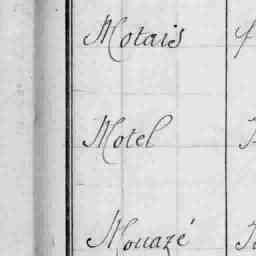 Motais
Motel
Mouazé